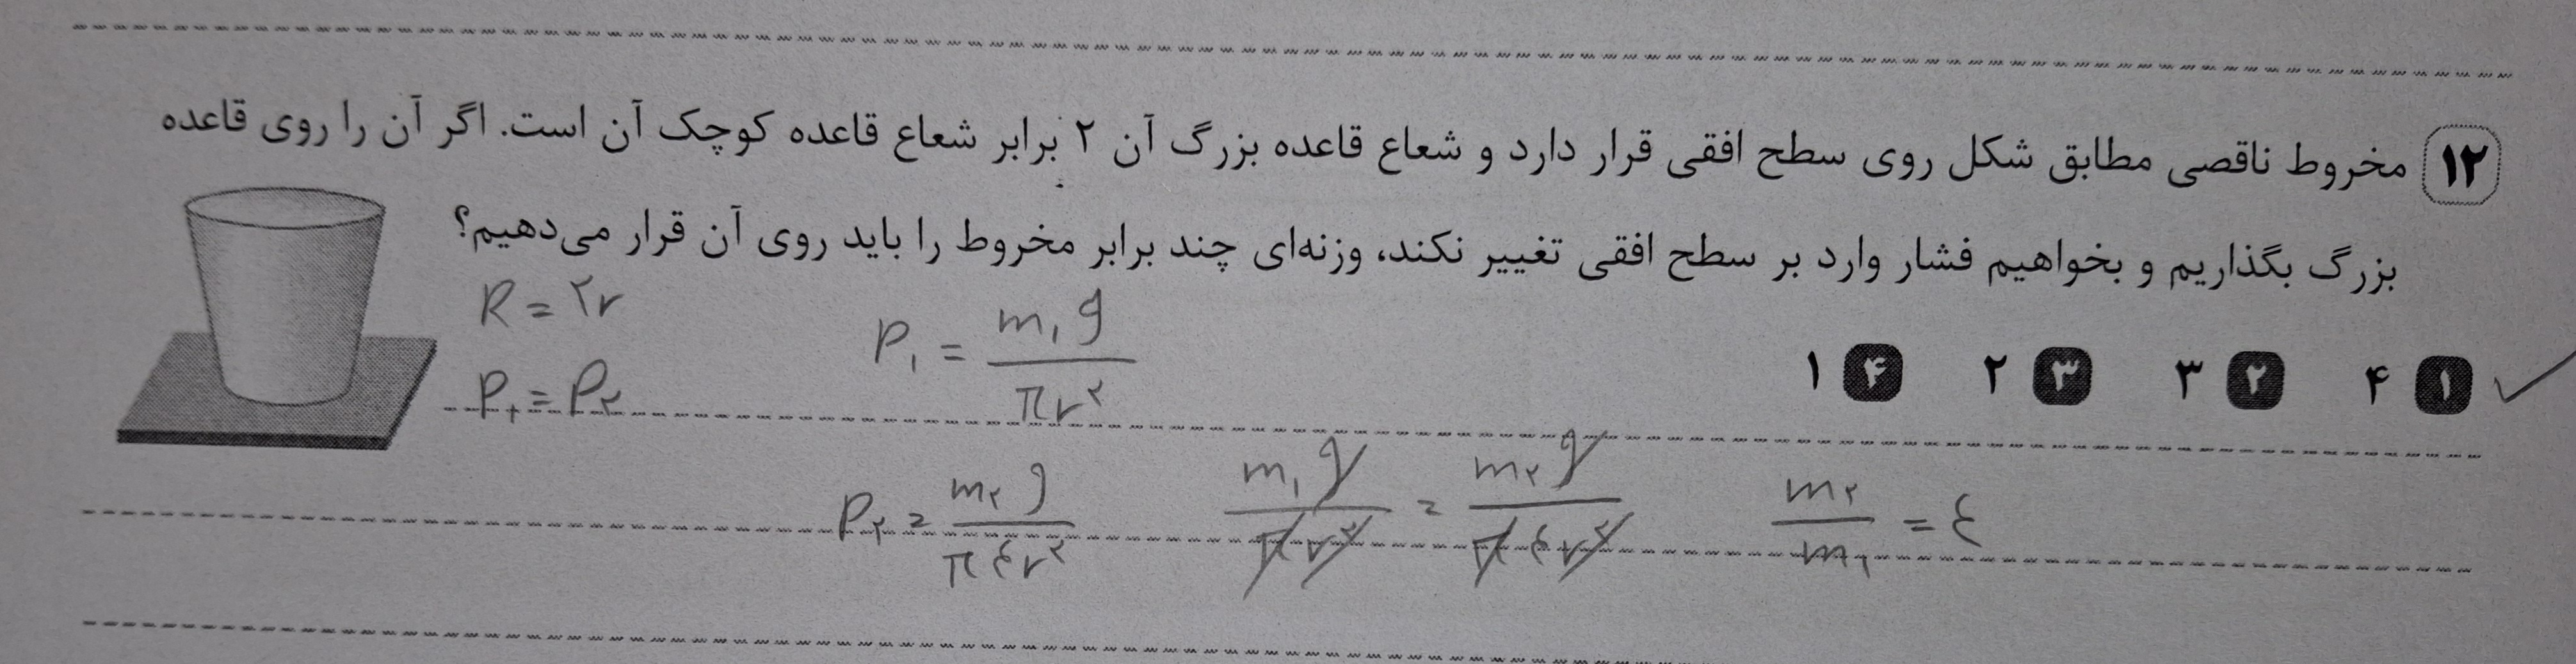 ۱۲ مخروط ناقصی مطابق شکل روی سطح افقی قرار دارد و شعاع قاعده بزرگ آن ۲ برابر شعاع قاعده کوچک آن است. اگر آن را روی قاعده
بزرگ بگذاریم و بخواهیم فشار وارد بر سطح افقی تغییر نکند، وزنه‌ای چند برابر مخروط را باید روی آن قرار می‌دهیم؟
R = ۲r
P۱ = m۱g / πr۲
۱ ۴ ۲ ۳ ۳ ۲ ۴ ۱
P۱ = P۲
P۲ = m۲g / π۴r۲ m۱g / πr۲ = m۲g / π۴r۲ m۲ / m۱ = ۴